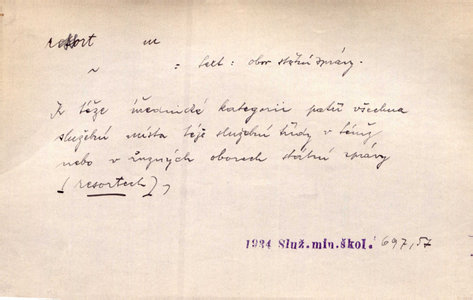 resort m
~ : sekt : obor státní správy.
K téže úřednické kategorii patří všechna
služební místa téže služební třídy v témž
nebo v různých oborech státní správy
(resortech),
1934 Služ.min.škol. 697,57